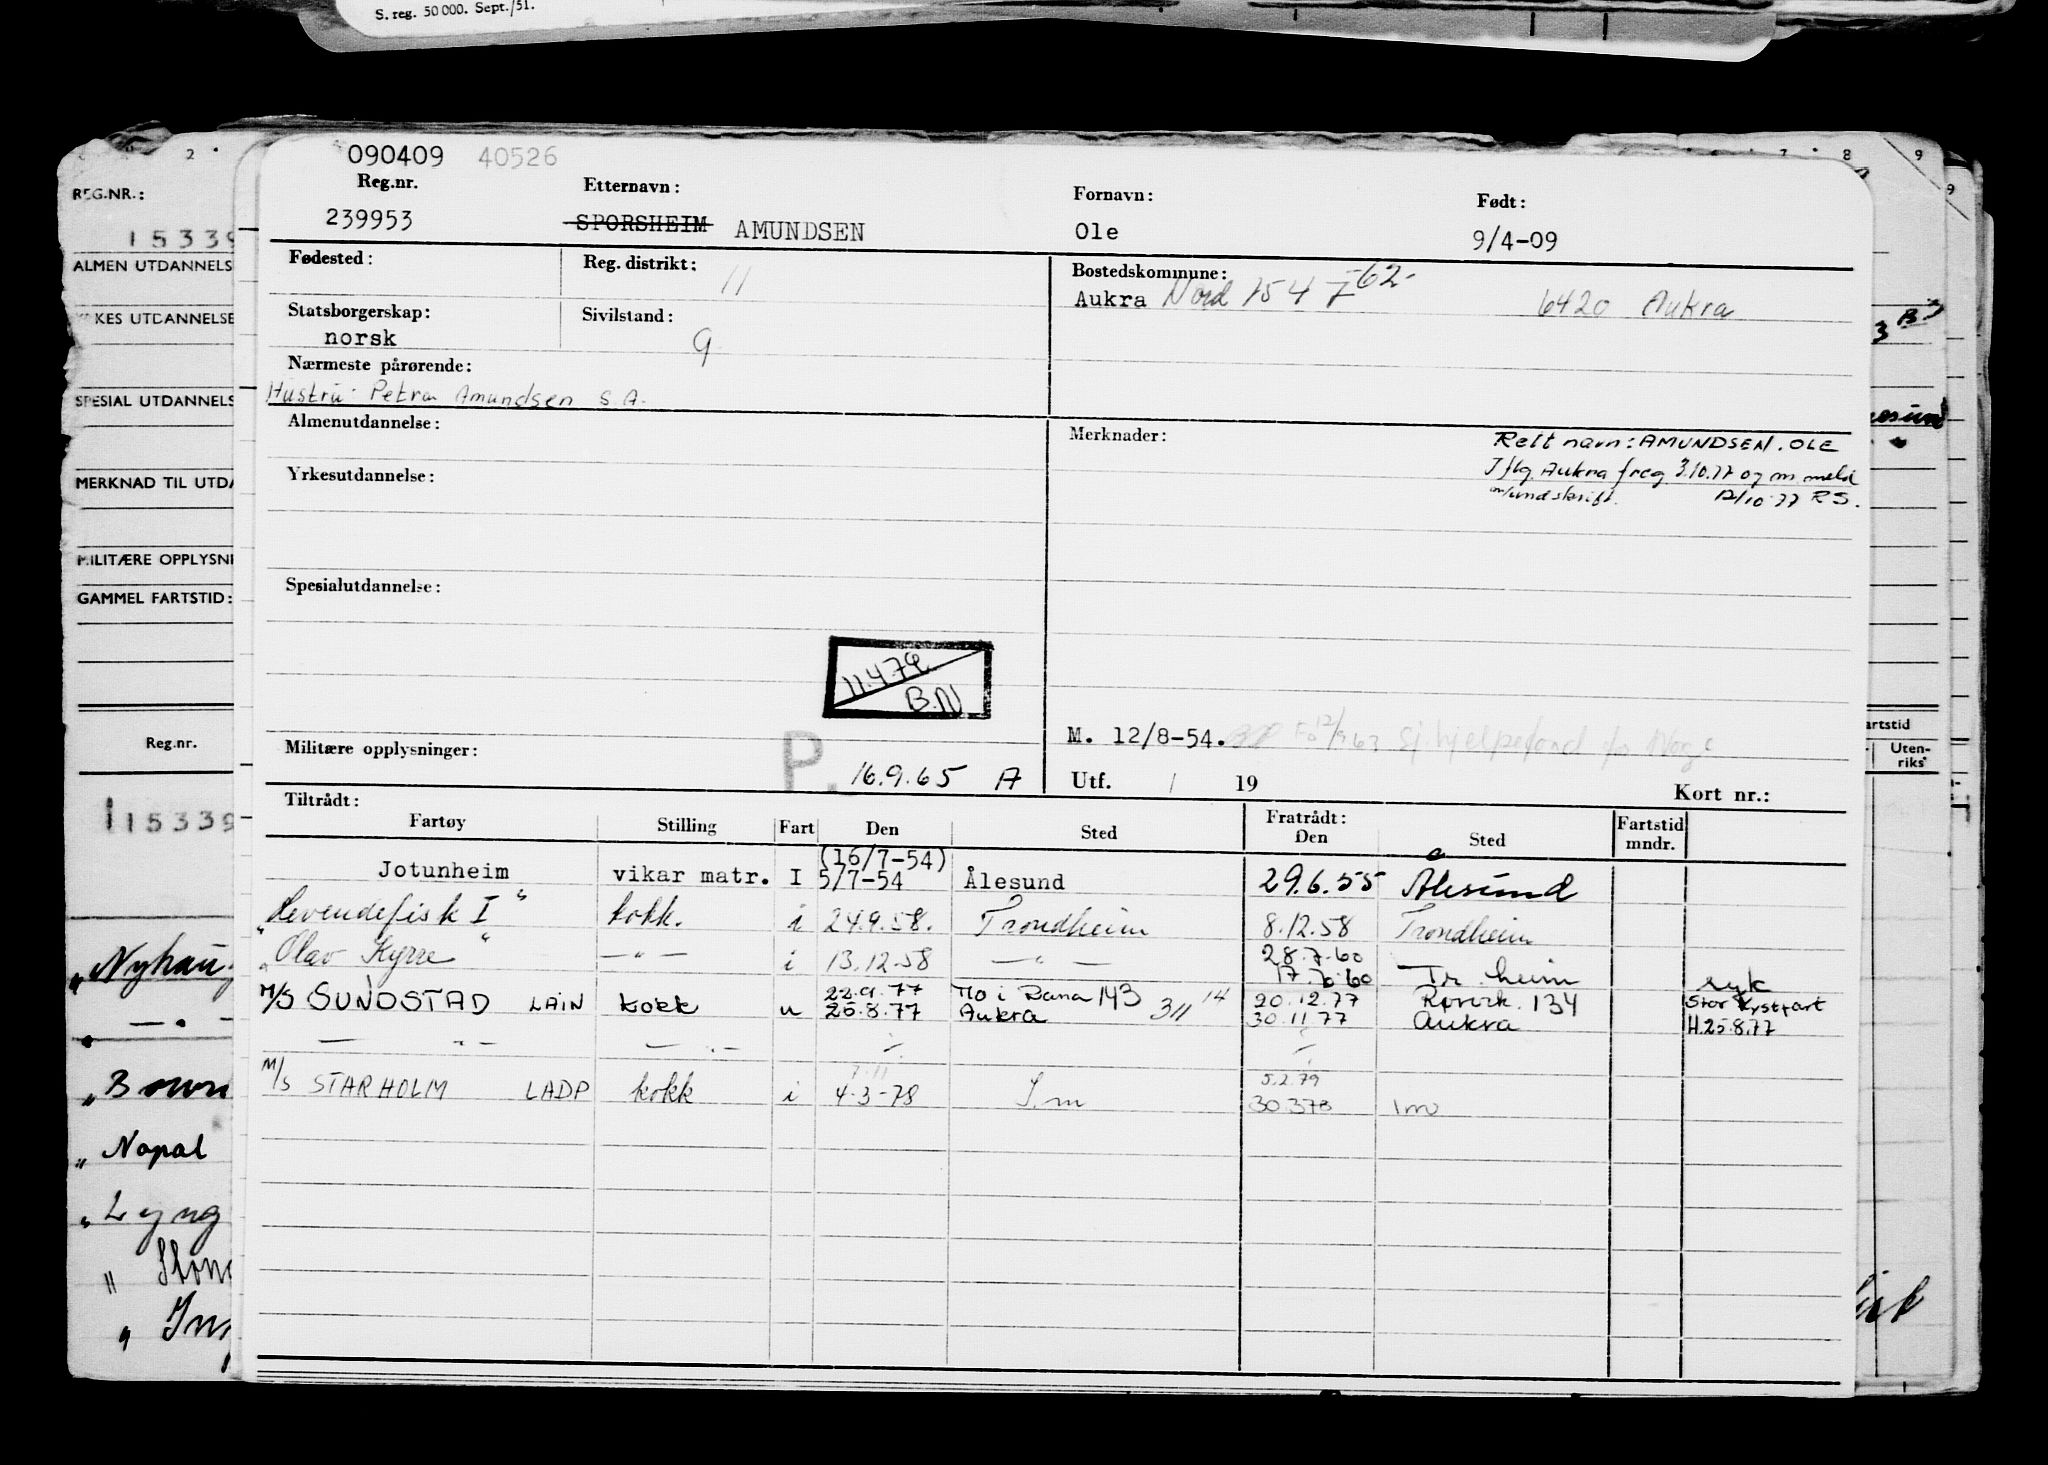 S. reg. 50 000. Sept./51.
2
7 8 9
9
REG.NR.:
15339
ALMEN UTDANNELS
KES UTDANNELSE
SPESIAL UTDANNELS
MERKNAD TIL UTDA
MILITÆRE OPPLYSNI
GAMMEL FARTSTID:
Reg.nr.
15339
"Nyhau
"Boun
" Nopal
"Lyng
artstid
Uten-
riks
090409 40526
Reg.nr. Etternavn: Fornavn: Født:
239953 SPORSHEIM AMUNDSEN Ole 9/4-09
Fødested: Reg. distrikt: 11 Bostedskommune:
Aukra Nord 1547 -62- 6420 Aukra
Statsborgerskap: Sivilstand:
norsk g
Nærmeste pårørende:
Hustru: Petra Amundsen S.A.
Almenutdannelse: Merknader: Rett navn: AMUNDSEN. OLE
I flg. Aukra freg 3.10.77 og m meld
Yrkesutdannelse: m/undskrift. 12/10-77 RS.
Spesialutdannelse:
11.4.79
B.N
M. 12/8-54. sj.hjelpefond for
Militære opplysninger: P. 16.9.65 A Utf. / 19 Kort nr.:
Tiltrådt: Fratrådt:
Fartøy Stilling Fart Den Sted Den Sted Fartstid mndr.
(16/7-54)
Jotunheim vikar matr. I 5/7-54 Ålesund 29.6.55 Ålesund
"Levendefisk I" kokk. i 24.9.58. Trondheim 8.12.58 Trondheim
"Olav Kyrre" — " — i 13.12.58 — " — 28.7.60
17.6.60 Tr.heim syk
M/S SUNDSTAD LAIN kokk u 22.9.77 Mo i Rana 143 3/1 14 20.12.77 Rørvik. 134 Stor Kystfart
25.8.77 Aukra 30.11.77 Aukra H.25.8.77
— " — — " —
7.11 5.2.79
M/S STARHOLM LADP kokk i 4-3-78 I.m 30.378 Im